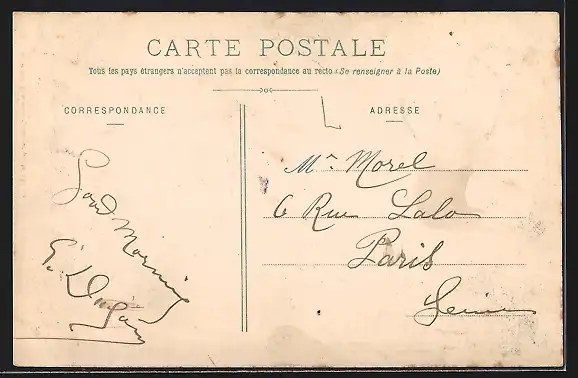 CARTE POSTALE
Tous les pays étrangers n'acceptent pas la correspondance au recto (Se renseigner à la Poste)
CORRESPONDANCE
ADRESSE
Good Morning
Mr Morel
6 Rue Lalo
Paris
Seine